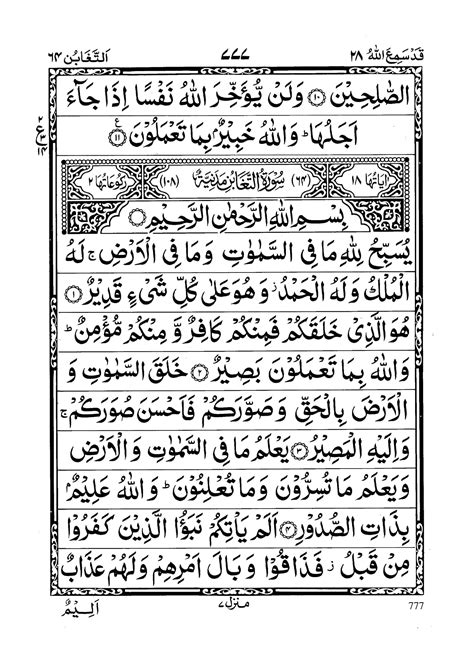 قَدْ سَمِعَ اللّٰهُ ٢٨ ٧٧٧ اَلتَّغَابُن ٦٤
الصّٰلِحِيْنَ ۝١٠ وَلَنْ يُّؤَخِّرَ اللّٰهُ نَفْسًا اِذَا جَآءَ
اَجَلُهَا ؕ وَاللّٰهُ خَبِيْرٌۢ بِمَا تَعْمَلُوْنَ ۝١١ ع
اٰيَاتُهَا ١٨ (٦٤) سُوْرَةُ التَّغَابُنِ مَدَنِيَّةٌ (١٠٨) رُكُوْعَاتُهَا ٢
بِسْمِ اللّٰهِ الرَّحْمٰنِ الرَّحِيْمِ ۝
يُسَبِّحُ لِلّٰهِ مَا فِى السَّمٰوٰتِ وَمَا فِى الْاَرْضِ ۚ لَهُ
الْمُلْكُ وَلَهُ الْحَمْدُ ؗ وَهُوَ عَلٰى كُلِّ شَىْءٍ قَدِيْرٌ ۝١
هُوَ الَّذِىْ خَلَقَكُمْ فَمِنْكُمْ كَافِرٌ وَّ مِنْكُمْ مُّؤْمِنٌ ؕ
وَاللّٰهُ بِمَا تَعْمَلُوْنَ بَصِيْرٌ ۝٢ خَلَقَ السَّمٰوٰتِ وَ
الْاَرْضَ بِالْحَقِّ وَصَوَّرَكُمْ فَاَحْسَنَ صُوَرَكُمْ ۚ
وَاِلَيْهِ الْمَصِيْرُ ۝٣ يَعْلَمُ مَا فِى السَّمٰوٰتِ وَالْاَرْضِ
وَيَعْلَمُ مَا تُسِرُّوْنَ وَمَا تُعْلِنُوْنَ ؕ وَاللّٰهُ عَلِيْمٌۢ
بِذَاتِ الصُّدُوْرِ ۝٤ اَلَمْ يَاْتِكُمْ نَبَؤُا الَّذِيْنَ كَفَرُوْا
مِنْ قَبْلُ ؗ فَذَاقُوْا وَبَالَ اَمْرِهِمْ وَلَهُمْ عَذَابٌ
اَلِيْمٌ منزل ٧ 777